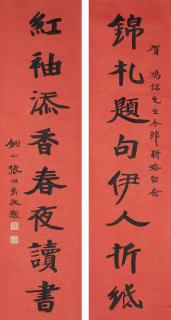 賀 鴻銘先生令郎新婚留念
錦札題句伊人折紙
紅袖添香春夜讀書
銅山張伯英敬題